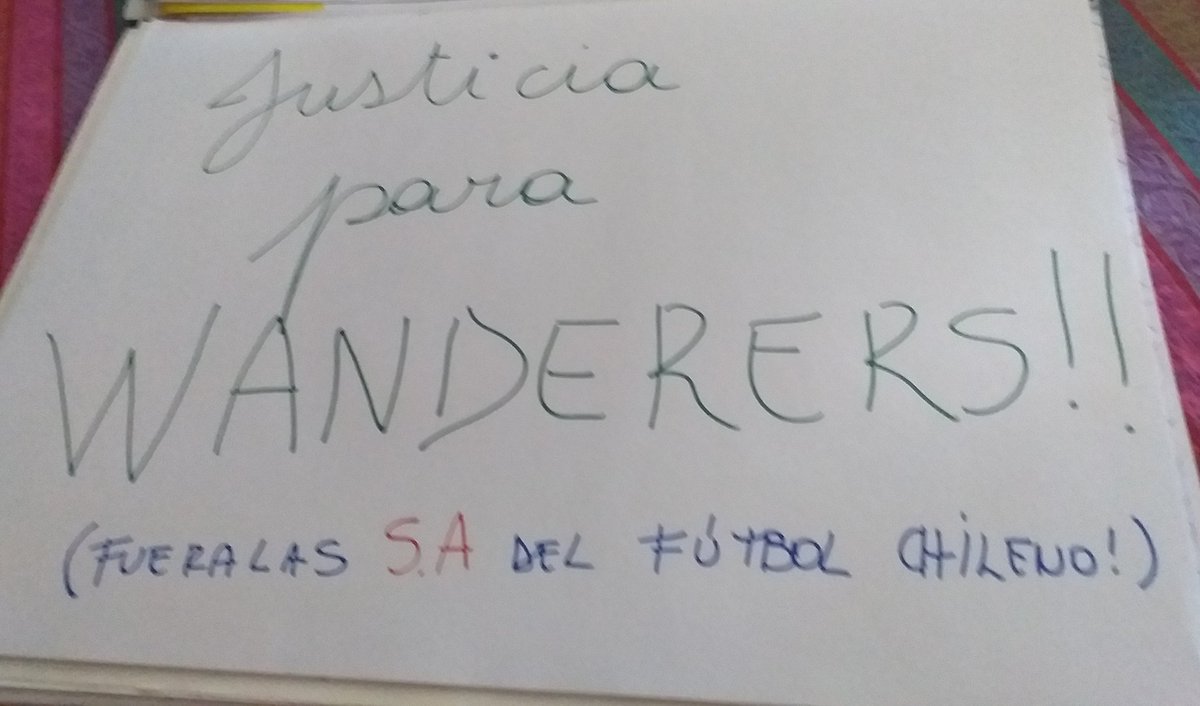 Justicia
para
WANDERERS!!
(FUERA LAS S.A DEL FÚTBOL CHiLENO!)